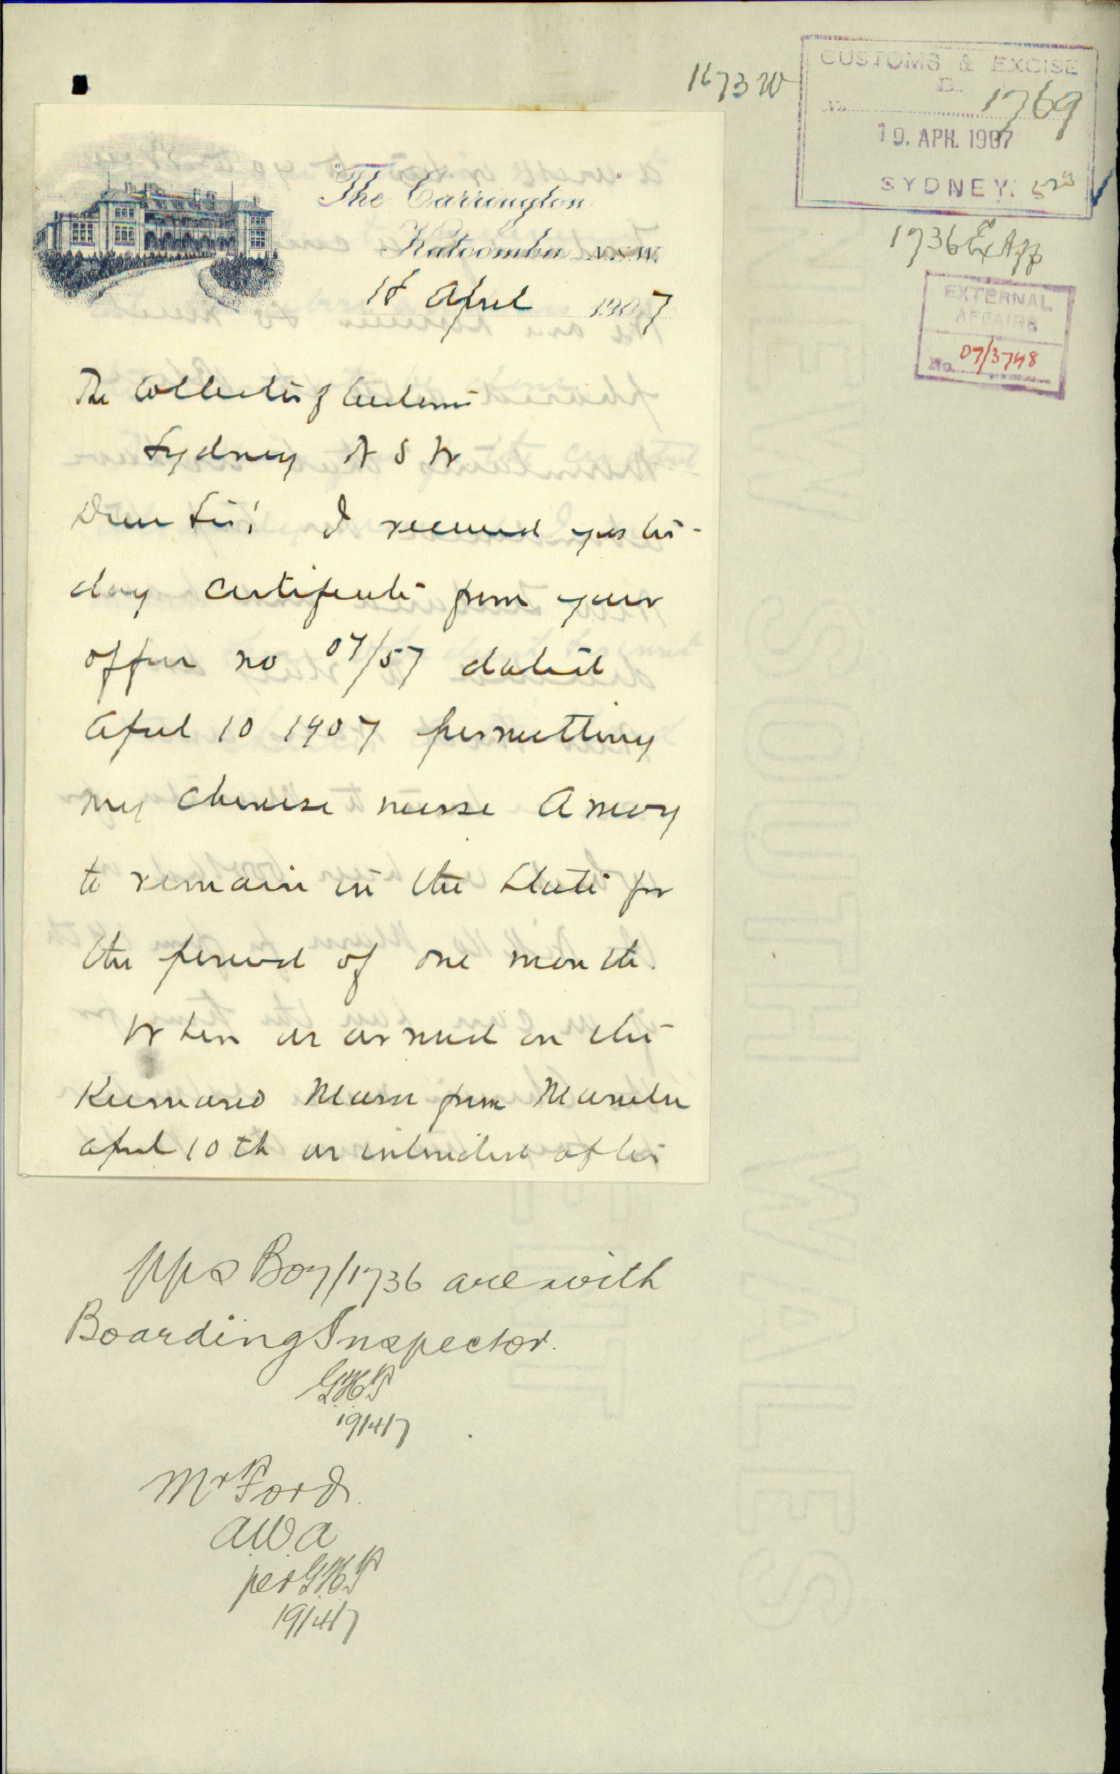 1673 W
CUSTOMS & EXCISE
B.
No. 1769
19. APR. 1907
SYDNEY.
1736 Ex App
EXTERNAL
AFFAIRS
No. 07/3748
The Carrington
Katoomba N.S.W.
18 April 1907
The Collector of Customs
Sydney N S W
Dear Sir! I received yester-
day certificate from your
office no 07/57 dated
April 10 1907 permitting
my Chinese nurse Amoy
to remain in the State for
the period of one month.
When we arrived on the
Kumano Maru from Manila
April 10th we intended after
pps B07/1736 are with
Boarding Inspector.
19/4/7
Mr Ford
AWA
per
19/4/7
NEW SOUTH WALES